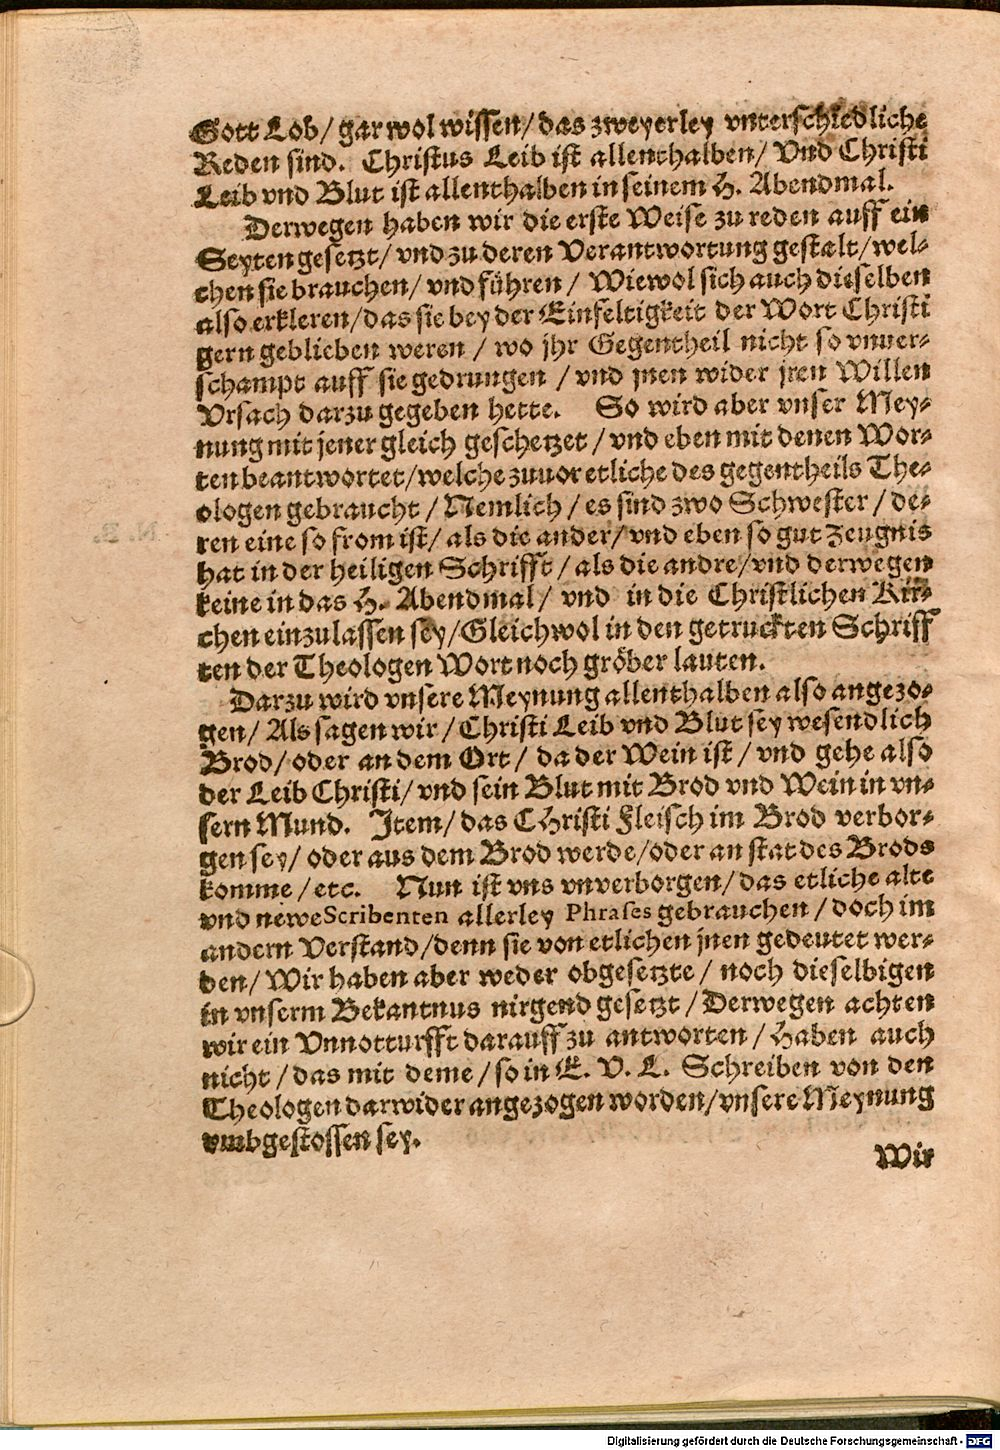 Gott Lob/ gar wol wissen/ das zweyerley vnterschiedliche
Reden sind. Christus Leib ist allenthalben/ Vnd Christi
Leib vnd Blut ist allenthalben in seinem H. Abendmal.
Derwegen haben wir die erste Weise zu reden auff ein
Seyten gesetzt/ vnd zu deren Verantwortung gestalt/ wel-
chen sie brauchen/ vnd führen/ Wiewol sich auch dieselben
also erkleren/ das sie bey der Einfeltigkeit der Wort Christi
gern geblieben weren/ wo jhr Gegentheil nicht so vnuer-
schampt auff sie gedrungen/ vnd jnen wider jren Willen
Vrsach darzu gegeben hette. So wird aber vnser Mey-
nung mit jener gleich geschetzet/ vnd eben mit denen Wor-
ten beantwortet/ welche zuuor etliche des gegentheils The-
ologen gebraucht/ Nemlich/ es sind zwo Schwester/ de-
ren eine so from ist/ als die ander/ vnd eben so gut Zeugnis
hat in der heiligen Schrifft/ als die andre/ vnd derwegen
keine in das H. Abendmal/ vnd in die Christlichen Kir-
chen einzulassen sey/ Gleichwol in den getruckten Schriff
ten der Theologen Wort noch gröber lauten.
Darzu wird vnsere Meynung allenthalben also angezo-
gen/ Als sagen wir/ Christi Leib vnd Blut sey wesendlich
Brod/ oder an dem Ort/ da der Wein ist/ vnd gehe also
der Leib Christi/ vnd sein Blut mit Brod vnd Wein in vn-
sern Mund. Item/ das CHristi Fleisch im Brod verbor-
gen sey/ oder aus dem Brod werde/ oder an stat des Brods
komme/ etc. Nun ist vns vnverborgen/ das etliche alte
vnd newe Scribenten allerley Phrases gebrauchen/ doch im
andern Verstand/ denn sie von etlichen jnen gedeutet wer-
den/ Wir haben aber weder obgesetzte/ noch dieselbigen
in vnserm Bekantnus nirgend gesetzt/ Derwegen achten
wir ein Vnnotturfft darauff zu antworten/ Haben auch
nicht/ das mit deme/ so in E. V. L. Schreiben von den
Theologen darwider angezogen worden/ vnsere Meynung
vmbgestossen sey.
Wir
Digitalisierung gefördert durch die Deutsche Forschungsgemeinschaft - DFG